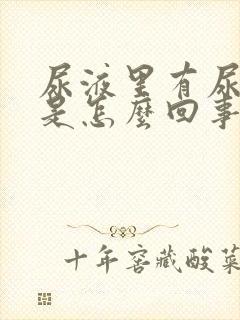 尿液里有尿
是怎麼回事
十年窖藏酸菜